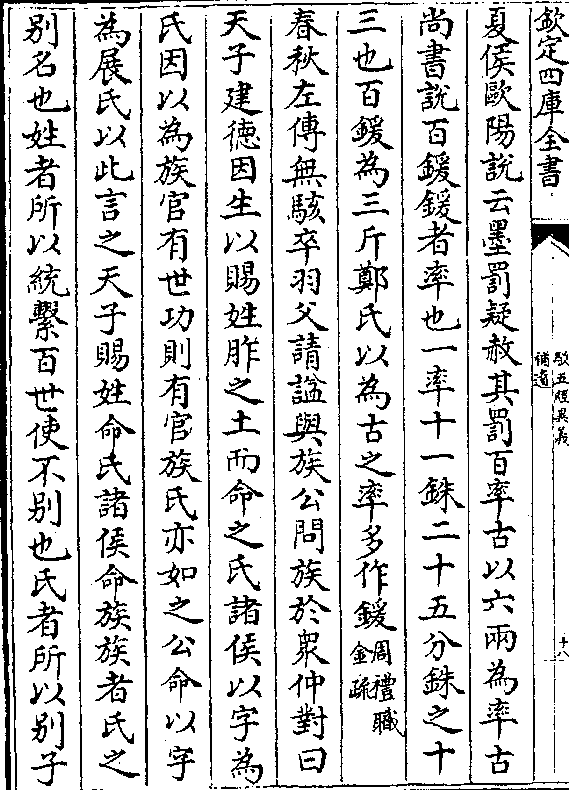 欽定四庫全書
駁五經異義
補遺
十八
夏侯歐陽說云墨罰疑赦其罰百率古以六兩為率古
尚書說百鍰鍰者率也一率十一銖二十五分銖之十
三也百鍰為三斤鄭氏以為古之率多作鍰周禮職
金疏
春秋左傳無駭卒羽父請諡與族公問族於衆仲對曰
天子建德因生以賜姓胙之土而命之氏諸侯以字為
氏因以為族官有世功則有官族氏亦如之公命以字
為展氏以此言之天子賜姓命氏諸侯命族族者氏之
别名也姓者所以統繫百世使不别也氏者所以别子